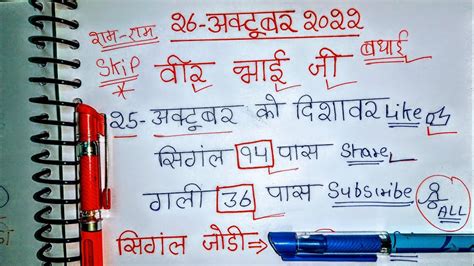 राम-राम 26-अक्टूबर 2022
SKIP वीर भाई जी बधाई
*
25-अक्टूबर को दिशावर Like
सिगंल 14 पास Share
गली 36 पास Subscribe & ALL
सिगंल जोडी ⇒